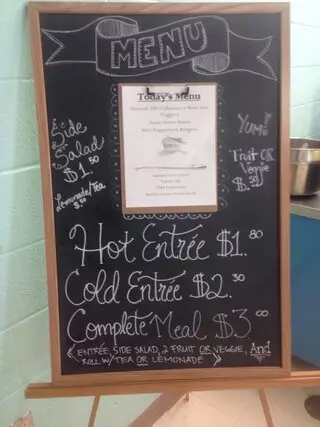 MENU
Today's Menu
Side
Salad
$1.50
Lemonade/Tea
$.50
Yum!
Fruit OR
Veggie
$.50
Hot Entrée $1.80
Cold Entrée $2.30
Complete Meal $3.00
(ENTRÉE, SIDE SALAD, 2 FRUIT OR VEGGIE, And
ROLL W/TEA OR LEMONADE)